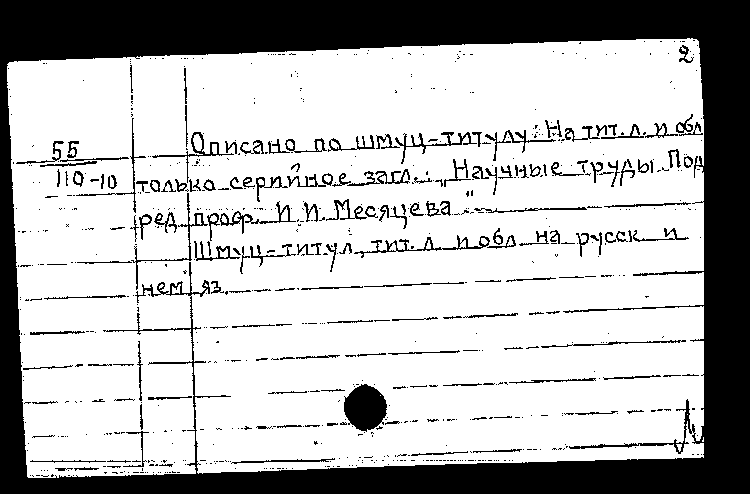 2
55
110-10
Описано по шмуц-титулу. На тит. л. и обл
только серийное загл.: „Научные труды Под
ред проф. И И. Месяцева"
Шмуц-титул, тит. л и обл. на русск и
нем яз.